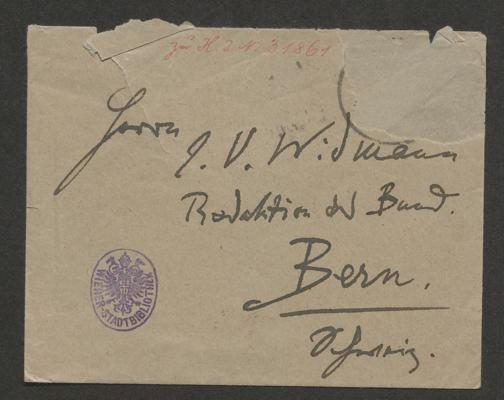 zu H. I. N. 31861
Herrn
J. V. Widmann
Redaktion des Bund.
Bern.
Schweiz.
WIENER-STADTBIBLIOTHEK